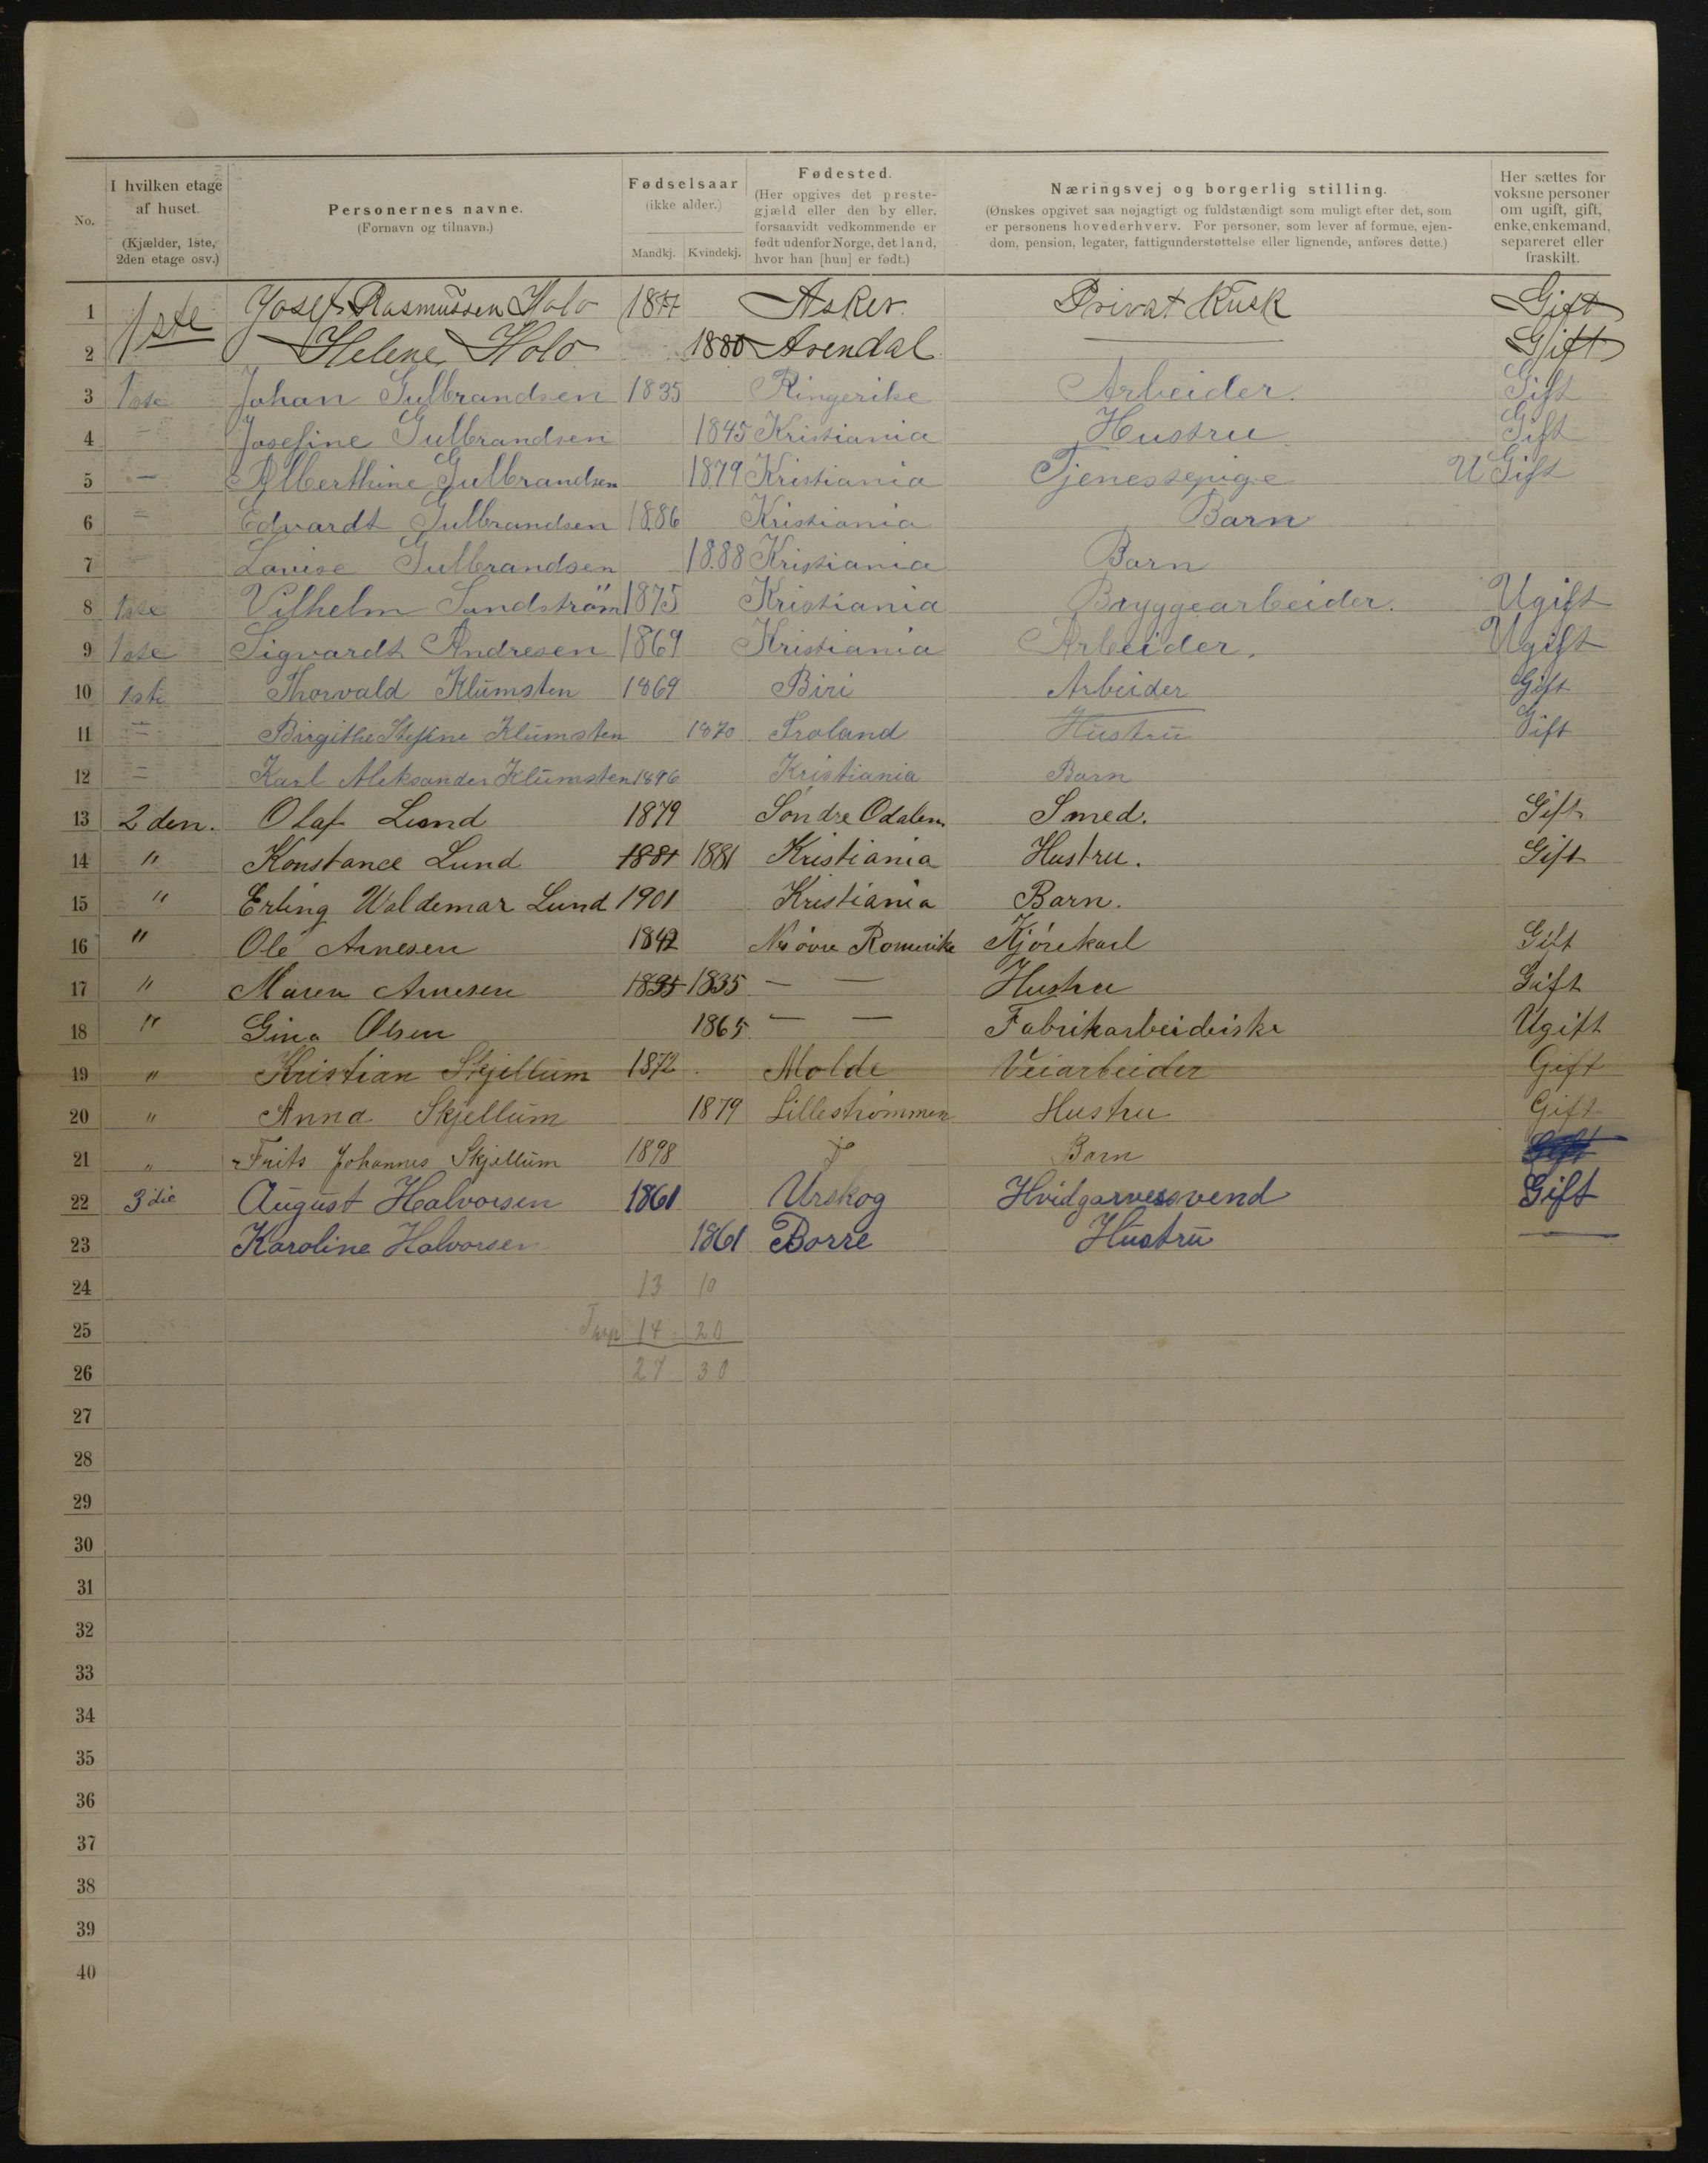 No.
I hvilken etage af huset.
(Kjælder, 1ste, 2den etage osv.)
Personernes navne.
(Fornavn og tilnavn.)
Fødselsaar
(ikke alder.)
Mandkj. Kvindekj.
Fødested.
(Her opgives det prestegjæld eller den by eller, forsaavidt vedkommende er født udenfor Norge, det land, hvor han [hun] er født.)
Næringsvej og borgerlig stilling.
(Ønskes opgivet saa nøjagtigt og fuldstændigt som muligt efter det, som er personens hovederhverv. For personer, som lever af formue, ejendom, pension, legater, fattigunderstøttelse eller lignende, anføres dette.)
Her sættes for voksne personer om ugift, gift, enke, enkemand, separeret eller fraskilt.
1 1ste Josef Rasmussen Holo 1877 Asker. Privat Kusk Gift
2 Helene Holo 1880 Arendal Gift
3 1ste Johan Gulbrandsen 1835 Ringerike Arbeider. Gift
4 – Josefine Gulbrandsen 1845 Kristiania Hustru Gift
5 – Alberthine Gulbrandsen 1879 Kristiania Tjenestepige U Gift
6 – Edvardt Gulbrandsen 1886 Kristiania Barn
7 – Lovise Gulbrandsen 1888 Kristiania Barn
8 1ste Vilhelm Sandström 1875 Kristiania Bryggearbeider. Ugift
9 1ste Sigvardt Andresen 1869 Kristiania Arbeider. Ugift
10 1ste Thorvald Klumsten 1869 Biri Arbeider Gift
11 = Birgithe Stefine Klumsten 1870 Froland Hustru Gift
12 = Karl Aleksander Klumsten 1896 Kristiania Barn
13 2den. Olaf Lund 1879 Söndre Odalen Smed. Gift
14 " Konstance Lund 1881 1881 Kristiania Hustru. Gift
15 " Erling Waldemar Lund 1901 Kristiania Barn.
16 " Ole Arnesen 1842 övre Romerike Kjörekarl Gift
17 " Maren Arnesen 1835 1835 — — Hustru Gift
18 " Gina Olsen 1865 — — Fabrikarbeiderske Ugift
19 " Kristian Skjellum 1872 Molde Veiarbeider Gift
20 " Anna Skjellum 1879 Lillestrømmen Hustru Gift
21 " Frits Johannes Skjellum 1898 Barn
22 3die August Halvorsen 1861 Urskog Hvidgarversvend Gift
23 Karoline Halvorsen 1861 Borre Hustru —
24 13 10
25 14 20
26 27 30
27
28
29
30
31
32
33
34
35
36
37
38
39
40